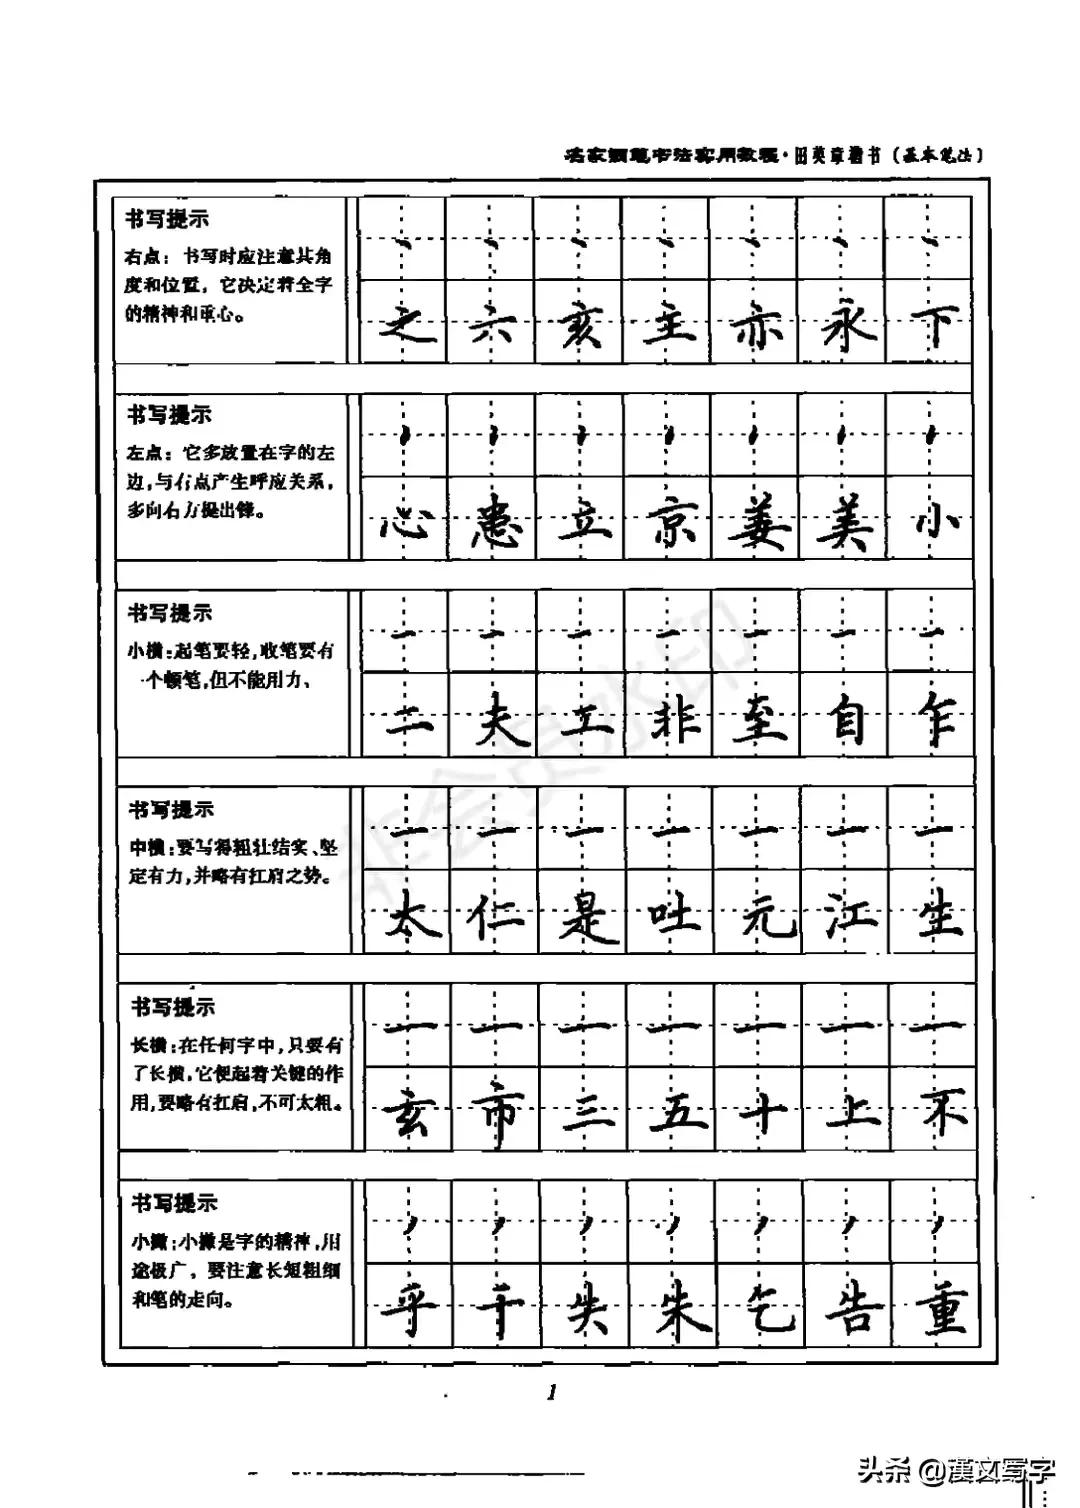 名家钢笔书法实用教程·田英章楷书(基本笔法)
书写提示
右点：书写时应注意其角
度和位置，它决定着全字
的精神和重心。
丶 丶 丶 丶 丶 丶 丶
之 六 亥 主 亦 永 下
书写提示
左点：它多放置在字的左
边,与右点产生呼应关系,
多向右方提出锋。
心 患 立 京 姜 美 小
书写提示
小横:起笔要轻,收笔要有
一个顿笔,但不能用力、
一 一 一 一 一 一 一
二 夫 工 非 至 自 乍
书写提示
中横:要写得粗壮结实、坚
定有力,并略有扛肩之势。
一 一 一 一 一 一 一
太 仁 是 吐 元 江 生
书写提示
长横:在任何字中,只要有
了长横,它便起着关键的作
用,要略有扛肩,不可太粗。
一 一 一 一 一 一 一
玄 市 三 五 十 上 不
书写提示
小撇:小撇是字的精神,用
途极广，要注意长短粗细
和笔的走向。
丿 丿 丿 丿 丿 丿 丿
乎 千 失 朱 乞 告 重
1
非会员水印
头条 @漢文写字